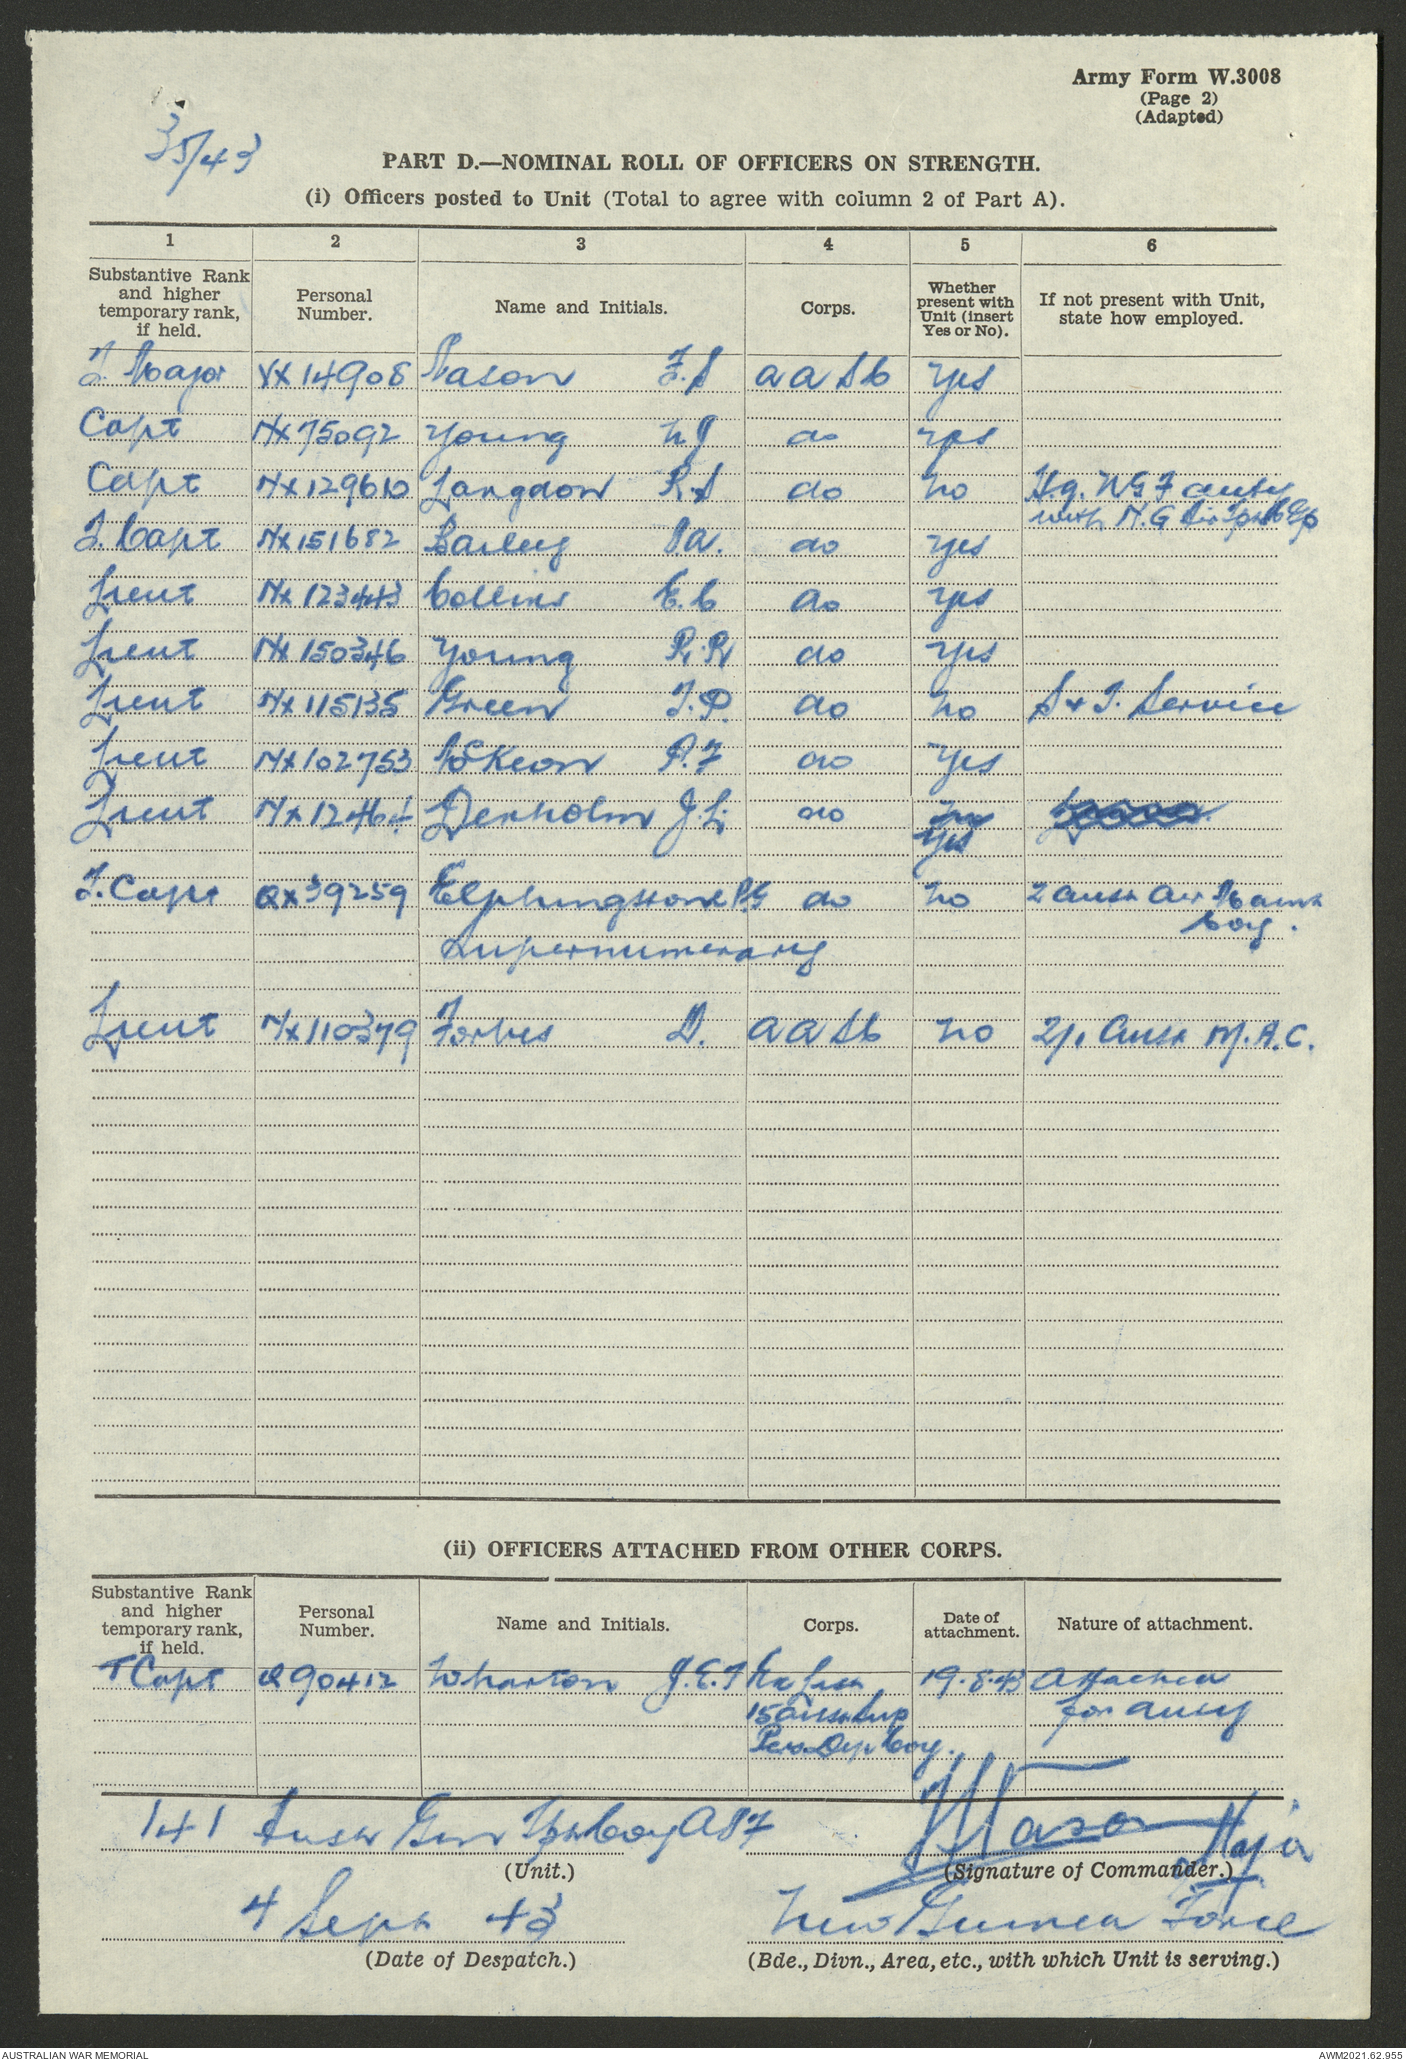 Army Form W.3008
(Page 2)
(Adapted)
35/43
PART D.—NOMINAL ROLL OF OFFICERS ON STRENGTH.
(i) Officers posted to Unit (Total to agree with column 2 of Part A).
1 2 3 4 5 6
Substantive Rank and higher temporary rank, if held. Personal Number. Name and Initials. Corps. Whether present with Unit (insert Yes or No). If not present with Unit, state how employed.
T. Major VX14908 Mason F.S AASC Yes
Capt NX75092 Young N J do Yes
Capt NX129610 Langdon R.S do No H.q. NGF duty
with N.G Air
T. Capt NX151682 Bailey do Yes
Lieut NX123443 Collins E.C do Yes
Lieut NX150346 Young R.R do Yes
Lieut NX115135 Green T.P. do No S & T. Service
Lieut NX102753 McKeon P.F do Yes
Lieut Denholm J.L. do Yes
T. Capt QX39259 Elphingstone P.G do No 2 Aust Air Maint
Coy.
Supernumerary
Lieut NX110379 Forbes D. AASC No 2/1 Aust M.A.C.
(ii) OFFICERS ATTACHED FROM OTHER CORPS.
Substantive Rank and higher temporary rank, if held. Personal Number. Name and Initials. Corps. Date of attachment. Nature of attachment.
T Capt Q90412 Wharton J.E.T 19.8.43 Attached
15 Aust Sup for duty
Pers. Dep Coy.
141 Aust Gen Tpt Coy A87 Mason Major
(Unit.) (Signature of Commander.)
4 Sept 43 New Guinea Force
(Date of Despatch.) (Bde., Divn., Area, etc., with which Unit is serving.)
AUSTRALIAN WAR MEMORIAL AWM2021.62.955